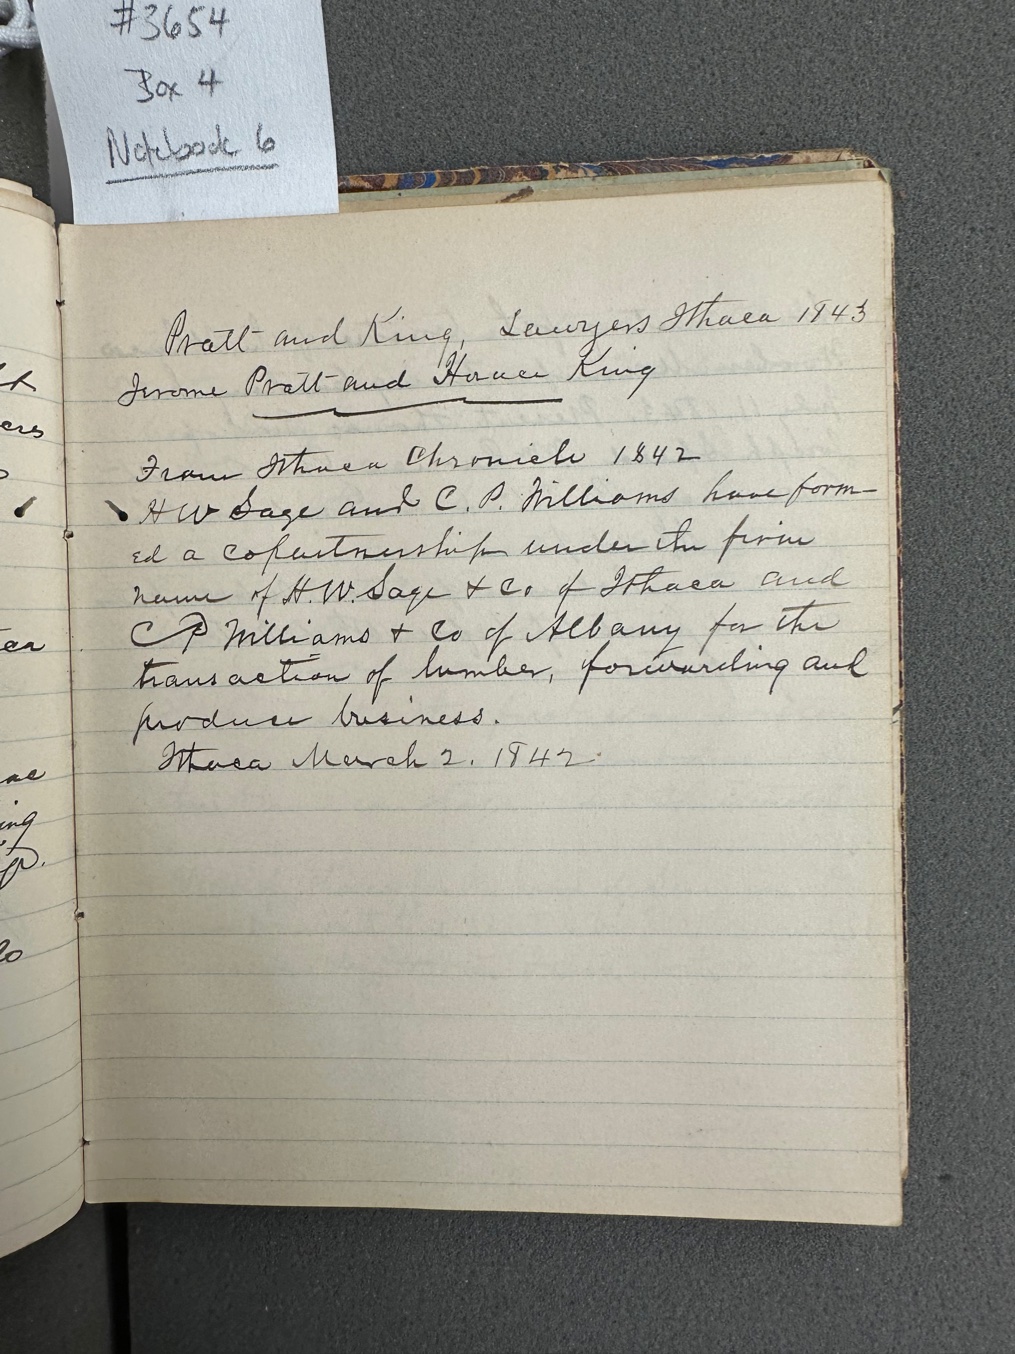 #3654
Box 4
Notebook 6
Pratt and King, Lawyers Ithaca 1843
Jerome Pratt and Horace King
From Ithaca Chronicle 1842
H W Sage and C. P. Williams have form-
ed a copartnership under the firm
name of H. W. Sage & Co of Ithaca and
C P Williams & Co of Albany for the
transaction of lumber, forwarding and
produce business.
Ithaca March 2. 1842